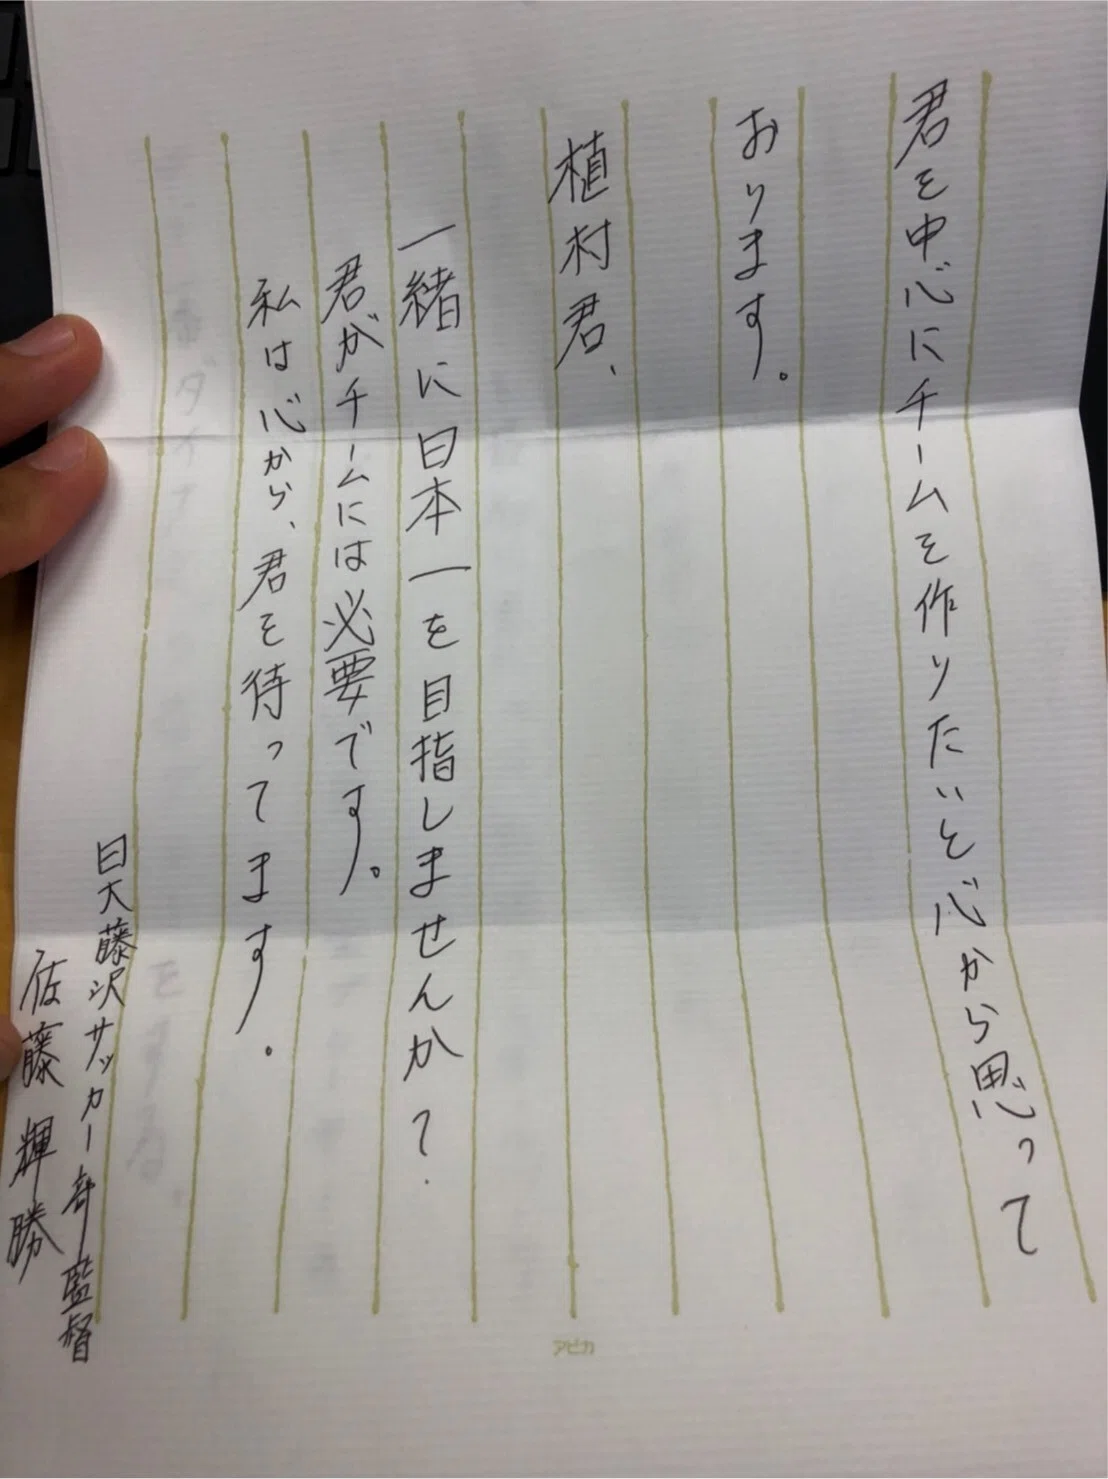 君を中心にチームを作りたいと心から思って
おります。
植村君、
一緒に日本一を目指しませんか?
君がチームには必要です。
私は心から、君を待ってます。
日大藤沢サッカー部監督
佐藤輝勝
アピカ